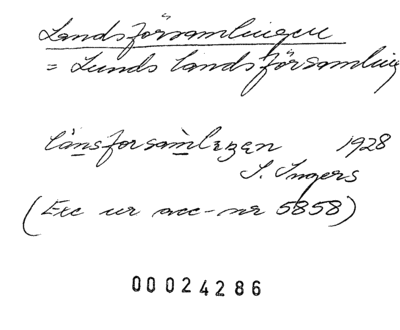 Landsförsamlingen
= Lunds landsförsamling
länsforsamlıŋen 1928
I. Ingers
(Exc ur acc-nr 5858)
00024286